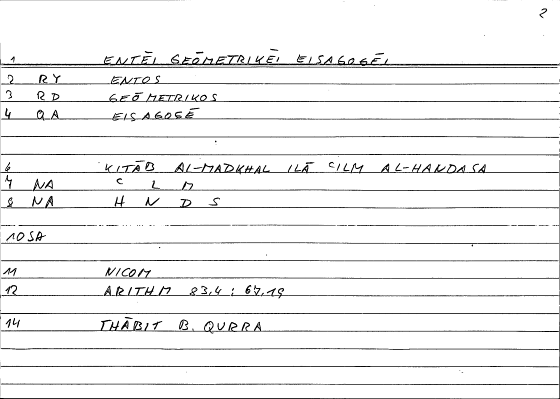 2
1 ENTĒI GEŌMETRIKĒI EISAGOGĒI
2 RY ENTOS
3 RD GEŌMETRIKOS
4 QA EISAGOGĒ
6 KITĀB AL-MADKHAL ILĀ CILM AL-HANDASA
7 NA C L M
8 NA H N D S
10 SA
11 NICOM
12 ARITHM 83,4 : 67,19
14 THĀBIT B. QURRA